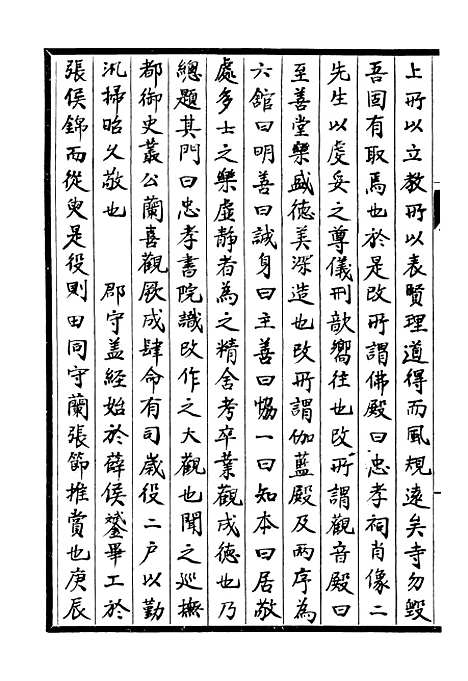 上所以立教所以表賢理道得而風規遠矣寺勿毀
吾固有取焉也於是改所謂佛殿曰忠孝祠肖像二
先生以虔妥之尊儀刑歆嚮往也改所謂觀音殿曰
至善堂樂盛德美深造也改所謂伽藍殿及两序為
六館曰明善曰誠身曰主善曰恊一曰知本曰居敬
處多士之樂虛靜者為之精舍考卒業觀成德也乃
總題其門曰忠孝書院識改作之大觀也聞之巡撫
都御史叢公蘭喜觀厥成肆命有司歲役二戶以勤
汛掃昭久敬也　郡守盖經始於薛侯鎏畢工於
張侯錦而從臾是役則田同守蘭張節推賞也庚辰